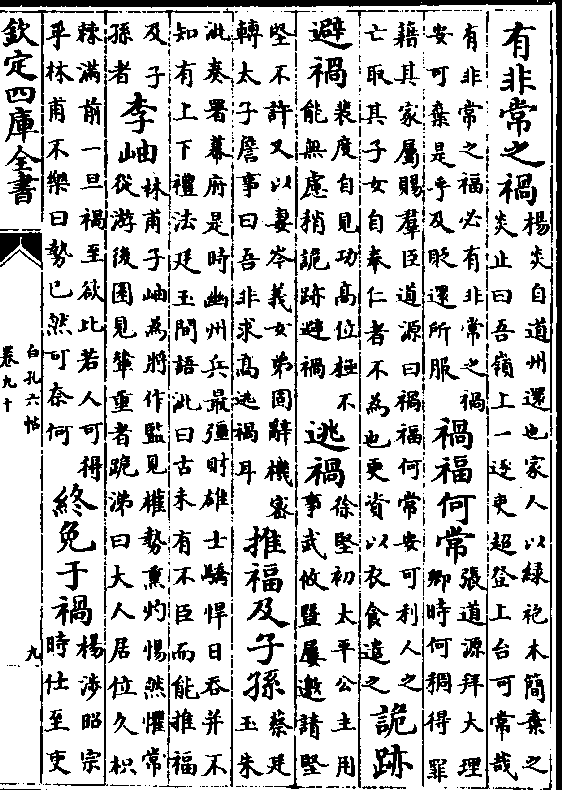 有非常之禍
楊炎自道州還也家人以綠袍木簡棄之
炎止曰吾嶺上一逐吏超登上台可常哉
有非常之福必有非常之禍
安可棄是乎及貶還所服
禍福何常
張道源拜大理
卿時何稠得罪
藉其家屬賜羣臣道源曰禍福何常安可利人之
亡取其子女自奉仁者不為也更資以衣食遣之
詭跡
避禍
裴度自見功高位極不
能無慮稍詭跡避禍
逃禍
徐堅初太平公主用
事武攸暨屢邀請堅
堅不許又以妻岑羲女弟固辭機密
轉太子詹事曰吾非求高逃禍耳
推福及子孫
蔡廷
玉朱
泚奏署幕府是時幽州兵最彊財雄士驕悍日吞并不
知有上下禮法廷玉間語泚曰古未有不臣而能推福
及子
孫者
李岫
林甫子岫為將作監見權勢熏灼惕然懼常
從游後園見輦重者跪涕曰大人居位久枳
棘滿前一旦禍至欲比若人可得
乎林甫不樂曰勢已然可奈何
終免于禍
楊涉昭宗
時仕至吏
欽定四庫全書
白孔六帖
卷九十
九